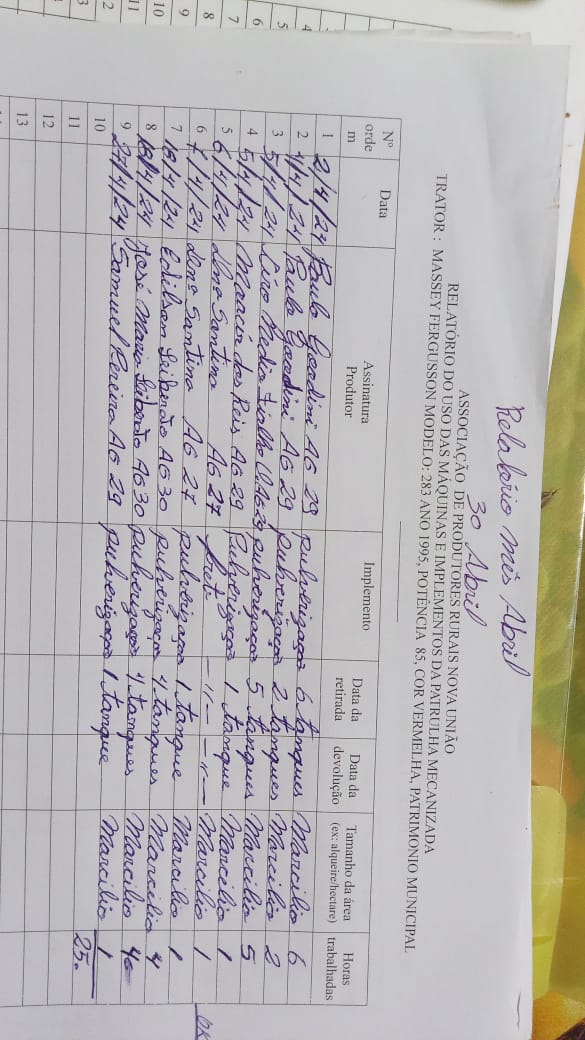 Relatorio mês Abril
30 Abril
ASSOCIAÇÃO DE PRODUTORES RURAIS NOVA UNIÃO
RELATÓRIO DO USO DAS MÁQUINAS E IMPLEMENTOS DA PATRULHA MECANIZADA
TRATOR : MASSEY FERGUSSON MODELO: 283 ANO 1995, POTÊNCIA 85, COR VERMELHA, PATRIMONIO MUNICIPAL
Nº orde m Data Assinatura Produtor Implemento Data da retirada Data da devolução Tamanho da área (ex: alqueire/hectare) Horas trabalhadas
1 2/4/24 Paulo AG 29 pulverizaçao 6 tanques Marcilio 6
2 4/4/24 Paulo AG 29 pulverizaçao 2 tanques Marcilio 2
3 5/4/24 pulverizaçao 5 tanques Marcilio 5
4 5/4/24 Marcia dos Reis AG 29 Pulverizaçao 1 tanque Marcilio 1
5 6/4/24 dono Santino AG 27 -"- -"- Marcilio 1
6 7/4/24 dono Santino AG 27 pulverizaçao 1 tanque Marcilio 1
7 18/4/24 Edilson AG 30 pulverizaçao 4 tanques Marcilio 4
8 18/4/24 José Maria AG 30 pulverizaçao 4 tanques Marcilio 4
9 27/4/24 Samuel Pereira AG 29 pulverizaçao 1 tanque Marcilio 1
10 25
11
12
13
OK